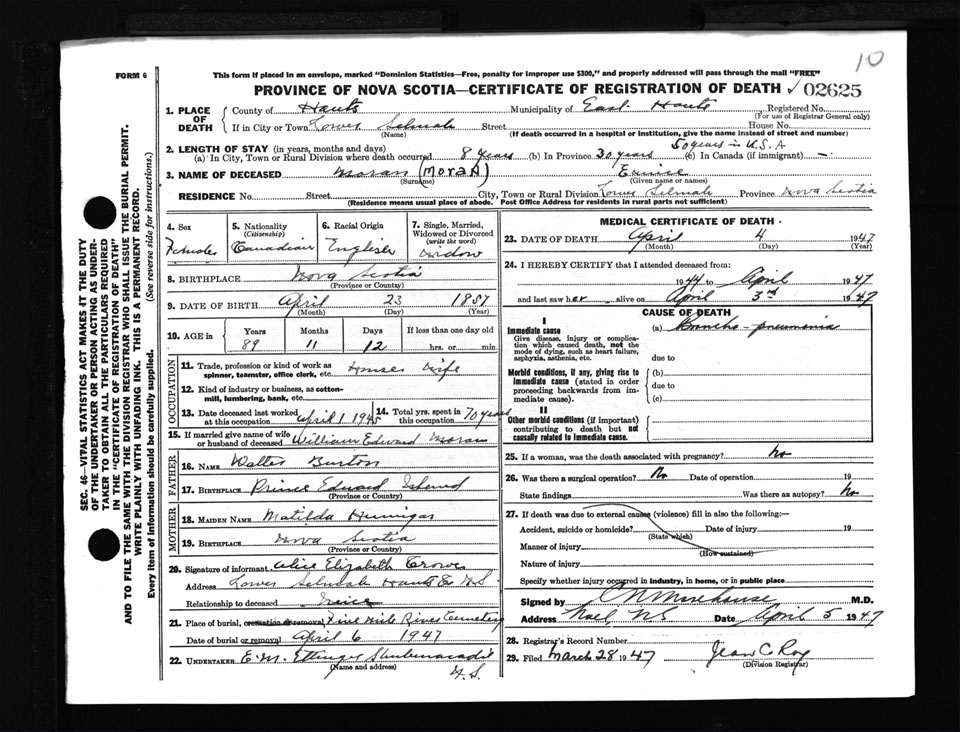 10
FORM 6
This form if placed in an envelope, marked "Dominion Statistics—Free, penalty for improper use $300," and properly addressed will pass through the mail "FREE"
PROVINCE OF NOVA SCOTIA—CERTIFICATE OF REGISTRATION OF DEATH 02625
SEC. 46—VITAL STATISTICS ACT MAKES IT THE DUTY
OF THE UNDERTAKER OR PERSON ACTING AS UNDER-
TAKER TO OBTAIN ALL THE PARTICULARS REQUIRED
IN THE "CERTIFICATE OF REGISTRATION OF DEATH"
AND TO FILE THE SAME WITH THE DIVISION REGISTRAR WHO SHALL ISSUE THE BURIAL PERMIT.
WRITE PLAINLY WITH UNFADING INK. THIS IS A PERMANENT RECORD.
Every item of Information should be carefully supplied. (See reverse side for instructions.)
1. PLACE OF DEATH
County of Hants Municipality of East Hants Registered No.
(For use of Registrar General only)
If in City or Town Lower Selmah Street House No.
(Name) (If death occurred in a hospital or institution, give the name instead of street and number)
2. LENGTH OF STAY (in years, months and days) 50 years in U.S.A
(a) In City, Town or Rural Division where death occurred 8 years (b) In Province 30 years (c) In Canada (if immigrant) —
3. NAME OF DECEASED Moran (MoraN) Eunice
(Surname) (Given name or names)
RESIDENCE No. Street City, Town or Rural Division Lower Selmah Province Nova Scotia
(Residence means usual place of abode. Post Office Address for residents in rural parts not sufficient)
4. Sex
Female
5. Nationality (Citizenship)
Canadian
6. Racial Origin
English
7. Single, Married, Widowed or Divorced (write the word)
Widow
8. BIRTHPLACE Nova Scotia
(Province or Country)
9. DATE OF BIRTH April 23 1857
(Month) (Day) (Year)
10. AGE in Years Months Days If less than one day old
89 11 12 hrs. or min.
OCCUPATION
11. Trade, profession or kind of work as spinner, teamster, office clerk, etc. House Wife
12. Kind of industry or business, as cotton-mill, lumbering, bank, etc.
13. Date deceased last worked at this occupation April 1 1945
14. Total yrs. spent in this occupation 70 years
15. If married give name of wife or husband of deceased William Edward Moran
FATHER
16. NAME Walter Burton
17. BIRTHPLACE Prince Edward Island
(Province or Country)
MOTHER
18. MAIDEN NAME Matilda Hennigar
19. BIRTHPLACE Nova Scotia
(Province or Country)
20. Signature of informant Alice Elizabeth Crowe
Address Lower Selmah Hants Co N.S.
Relationship to deceased Niece
21. Place of burial, cremation or removal Five Mile River Cemetery
Date of burial or removal April 6 1947
22. UNDERTAKER E.M. Ettinger Shubenacadie
(Name and address) N.S.
MEDICAL CERTIFICATE OF DEATH
23. DATE OF DEATH April 4 1947
(Month) (Day) (Year)
24. I HEREBY CERTIFY that I attended deceased from:
1944 to April 1947
and last saw her alive on April 3rd 1947
CAUSE OF DEATH
I
Immediate cause
Give disease, injury or complication which caused death, not the mode of dying, such as heart failure, asphyxia, asthenia, etc.
(a) Broncho-pneumonia
due to
Morbid conditions, if any, giving rise to immediate cause (stated in order proceeding backwards from immediate cause).
(b)
due to
(c)
II
Other morbid conditions (if important) contributing to death but not causally related to immediate cause.
25. If a woman, was the death associated with pregnancy? No
26. Was there a surgical operation? No Date of operation 19
State findings Was there an autopsy? No
27. If death was due to external causes (violence) fill in also the following:—
Accident, suicide or homicide? Date of injury 19
(State which)
Manner of injury
(How sustained)
Nature of injury
Specify whether injury occurred in industry, in home, or in public place
Signed by C N Morehouse M.D.
Address Noel NS Date April 5 1947
28. Registrar's Record Number
29. Filed March 28 1947 Jean C Roy
(Division Registrar)